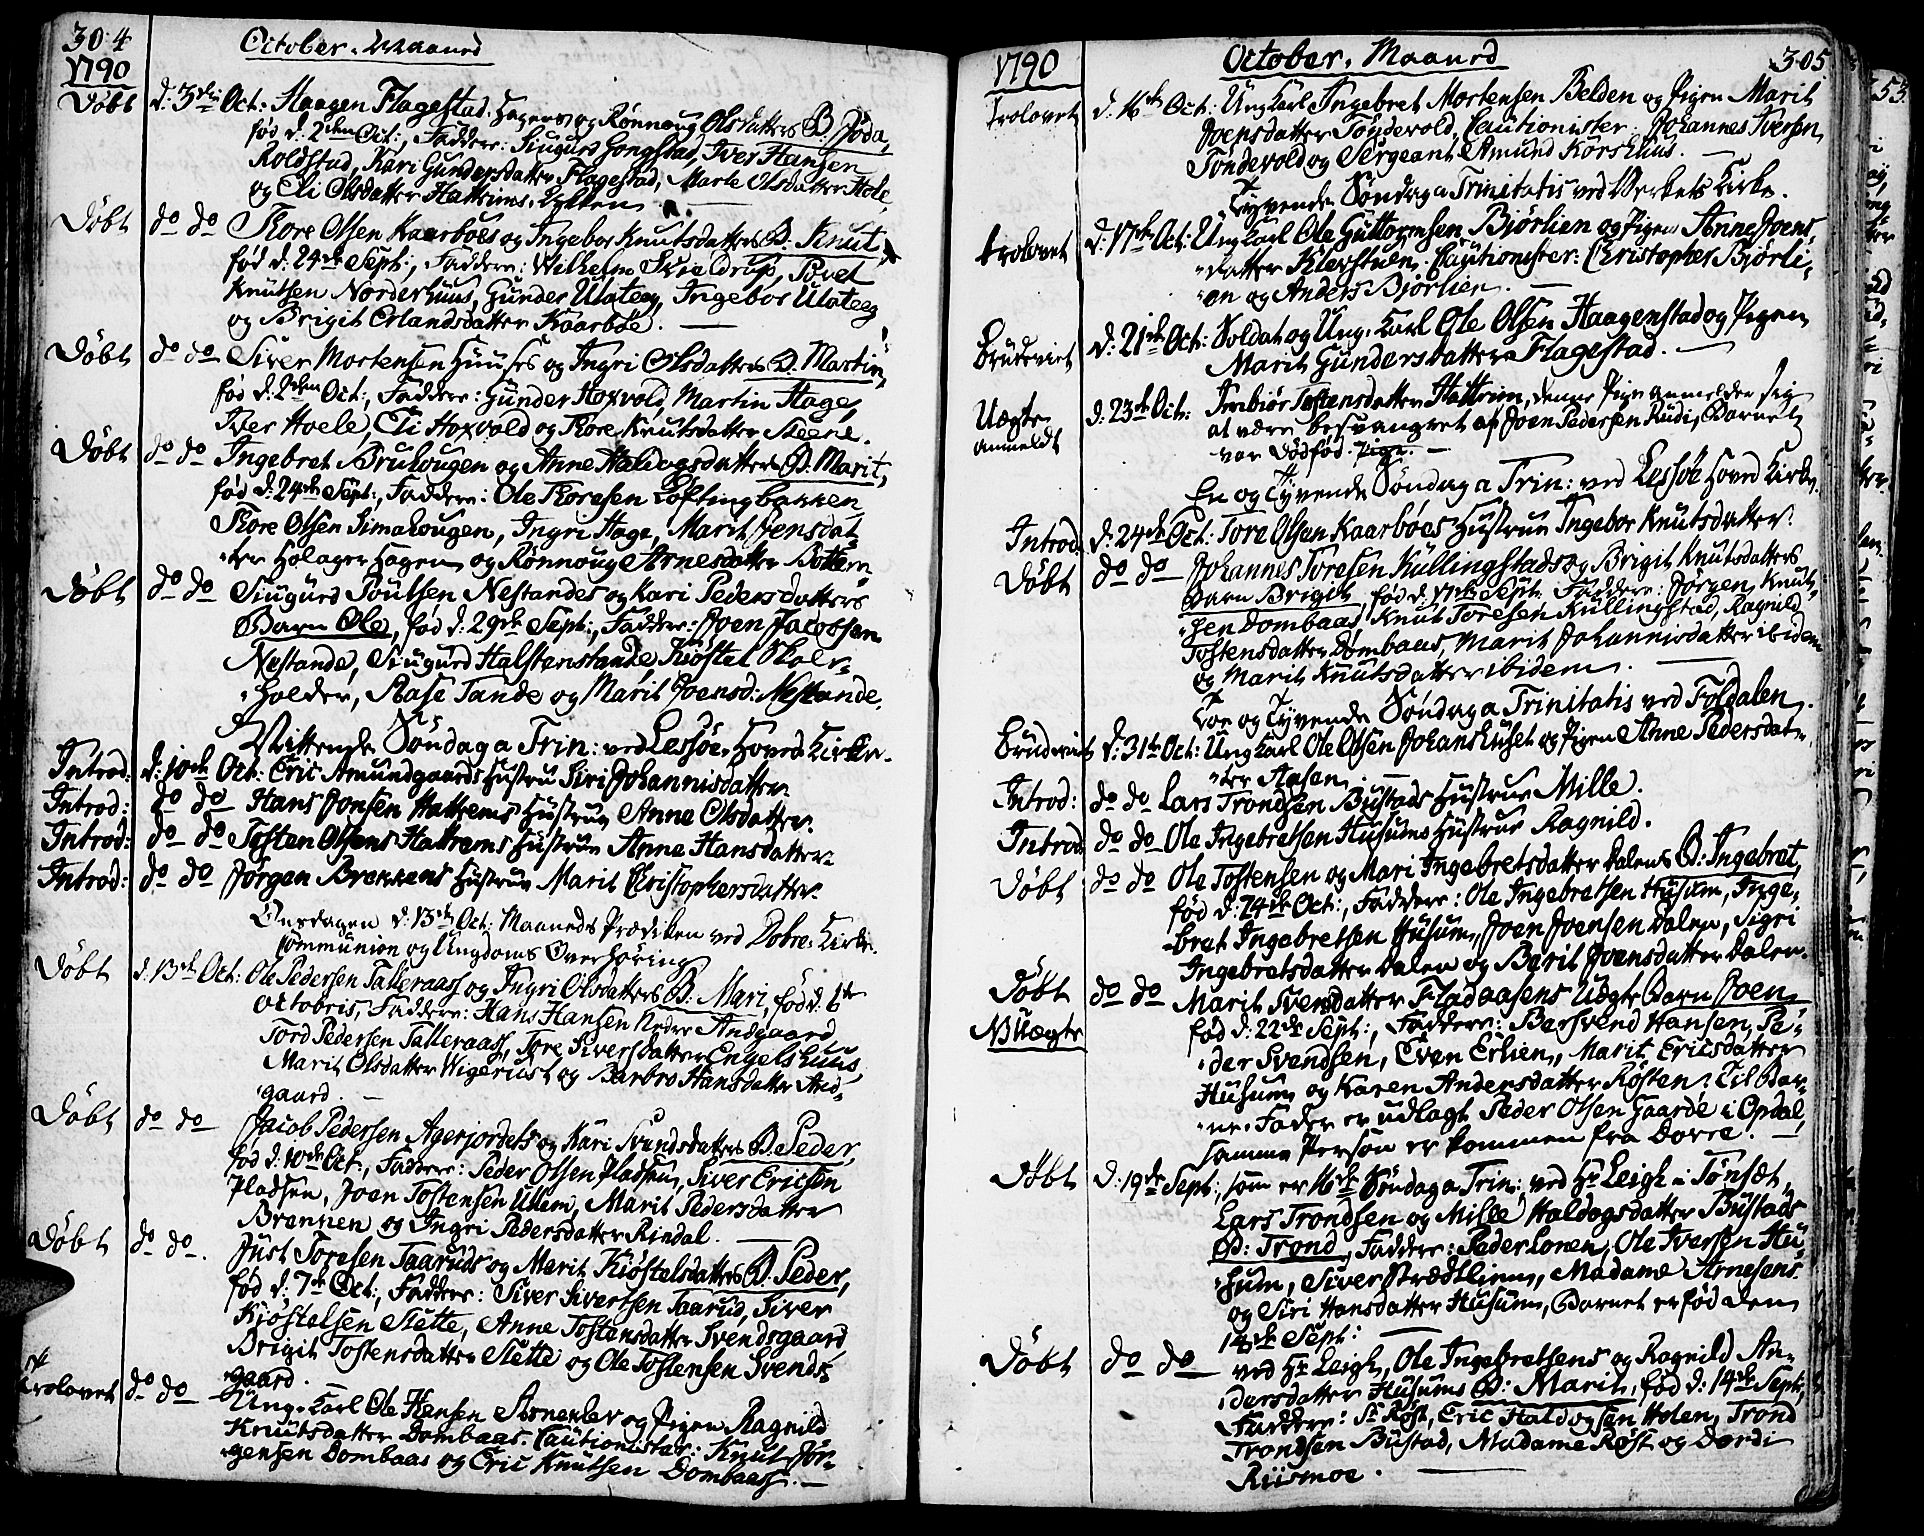 304
October. Maaned
1790
Döbt d: 3die Oct: Haagen Flagestad Hagens og Rønnoug Olsdatters B. Joda,
fød d: 2den Oct:, Faddere: Siugurs Gongstad, Iver Hansen
Roldstad, Kari Gundersdatter Flagestad, Marte Olsdatter Hole,
og Eli Olsdatter Hattrims Lykken
Döbt do do Thore Olsen Kaarböes og Ingebor Knutsdatters B. Knut,
fød d: 24de Sept:, Faddere: Wilhelm Skieldrup, Povel
Knutsen Norderhuus, Gunder Ulateeg, Ingebor Ulateeg
og Brigit Erlandsdatter Kaarböe.
Döbt do do Siver Mortensen Huuses og Ingri Olsdatters B. Martin,
fød d: 2den Oct:, Faddere: Gunder Hoxvold, Martin Hage,
Iver Hoele, Eli Hoxvold og Thore Knutsdatter Steene.
Döbt do do Ingebret Bruhougen og Anne Haldogsdatters B. Marit,
fød d: 24de Sept:, Faddere: Ole Thoresen Löftingbakken
Thore Olsen Simahougen, Ingri Hage, Marit Jensdat-
-ter Holager Hagen og Rönnoug Arnesdatter Bottem
Döbt do do Siugurd Poulsen Nestandes og Kari Pedersdatters
Barn Ole, fød d: 29de Sept:, Faddere: Joen Jacobsen
Nestande, Siugurd Halstenstande, Kiöstel Skoel-
-holder, Aase Tande og Marit Joensd: Nestande.
Nittende Söndag a Trin: ved Lessöe Hoved Kirke.
Introd: d: 10de Oct: Eric Amundgaards Hustru Siri Johannisdatter
Introd: do do Hans Jonsen Hattrems Hustrue Anne Olsdatter.
Introd: do do Tosten Olsens Hattrems Hustrue Anne Hansdatter
Introd: do do Jörgen Brennens Hustrue Marit Christophersdatter.
Onsdagen d: 13de Oct: Maaneds Prædiken ved Dovre Kirke.
Communion og Ungdoms Overhöring
Döbt d: 13de Oct: Ole Pedersen Talleraass og Ingri Olsdatters B. Mari, fød d: 6te
Octobris, Faddere: Hans Hansen Nedre Andgaard
Tord Pedersen Talleraass, Tore Siversdatter Engelshuus,
Marit Olsdatter Wigerust og Barbro Hansdatter And-
-gaard.
Döbt do do Jacob Pedersen Agerjordets og Kari Svendsdatters B. Peder,
fød d: 10de Oct:, Faddere: Peder Olsen Pladsen, Siver Ericsen
Pladsen, Joen Tostensen Ulhem, Marit Pedersdatter
Brennen og Ingri Pedersdatter Rindal.
Döbt do do. Just Toresen Taaruds og Marit Kiöstelsdatters B. Peder,
fød d: 7de Oct:, Faddere: Siver Sivertsen Taarud, Siver
Kjöstelsen Slette, Anne Tostensdatter Svendsgaard
Brigit Tostensdatter Slette og Ole Tostensen Svends-
-gaard.
Trolovet do do Ung-Karl Ole Hansen Arneklev og Pigen Ragnild
Knutsdatter Dombaas. Cautionister: Knut Jör-
-gensen Dombaas og Eric Knutsen Dombaass.
1790
October. Maaned
305
Trolovet d: 16de Oct: Ung Karl Ingebret Mortensen Belden og Pigen Marit
Joensdatter Töndevold, Cautionister: Johannes Iversen
Töndevold og Sergeant Amund Korshuus.
Tyvende Söndag a Trinitatis ved Verkets Kirke.
Trolovet d: 17de Oct: Ung Karl Ole Guttormsen Björlien og Pigen Anne Joens-
-datter Klevstuen. Cautionister: Christopher Björli-
-en og Anders Björlien.
Brudeviet d: 21de Oct: Soldat og Ung-Karl Ole Olsen Haagenstad og Pigen
Marit Gundersdatter Flagestad.
Uægte anmeldt d: 23de Oct: Torbiör Tostensdatter Hattrim, denne Pige anmelder sig
at være besvangret af Joen Pedersen Rudi, Barnet
var dödfød. Pige.
En og Tyvende Söndag a Trin: ved Lessöe Hoved Kirke.
Introd: d: 24de Oct: Tore Olsen Kaarböes Hustrue Ingebor Knutsdatter.
Döbt do do Johannes Toresen Kullingstads og Brigit Knutsdatters
Barn Brigit, fød d: 17de Sept: Faddere: Jörgen Knut-
-sen Dombaas, Knut Toresen Kullingstad, Ragnild
Tostensdatter Dombaas, Marit Johannisdatter ibidem
og Marit Knutsdatter ibidem.
Toe og Tyvende Söndag a Trinitatis ved Foldalen.
Brudeviet d: 31te Oct: Ung Karl Ole Olsen Johanshuset og Pigen Anne Pedersdat-
-ter Aasen.
Introd: do do Lars Trondsen Bustads Hustrue Mille.
Introd: do do Ole Ingebretsen Husums Hustrue Ragnild.
Döbt do do Ole Tostensen og Mari Ingebretsdatter Dalens B: Ingebret,
fød d: 24de Oct:, Faddere: Ole Ingebretsen Husum, Inge-
-bret Ingebretsen Husum, Joen Joensen Dalen, Sigri
Ingebretsdatter Dalen og Berit Joensdatter Dalen.
Döbt do do Marit Svensdatter Fladaasens Uægte Barn Joen
NB Uægte fød d: 22de Sept:, Faddere: Bersvend Hansen, Pe-
-der Svendsen, Even Erlien, Marit Ericsdatter
Husum og Karen Andersdatter Rösten: Til Bar-
-net Fader er udlagt Peder Olsen Gaarde i Opdal,
samme Person er kommen fra Dovre.
Döbt d: 19de Sept:, som er 16de Söndag a Trin: ved Hr Leigh i Tönset,
Lars Trondsen og Mille Haldogsdatter Bustads
B: Trond, Faddere: Peder Lonen, Ole Iversen Hu-
-sum, Siver Strædtliem, Madame Arnesens
og Siri Hansdatter Husum, Barnet er fød den
14de Sept:
Döbt do do ved Hr Leigh, Ole Ingebretsens og Ragnild An-
-dersdatter Husums B: Marit, fød d: 14de Sept:,
Faddere: Sr Röst, Eric Haldogsen Holen, Trond
Trondsen Bustad, Madame Röst og Dordi
Riismoe.